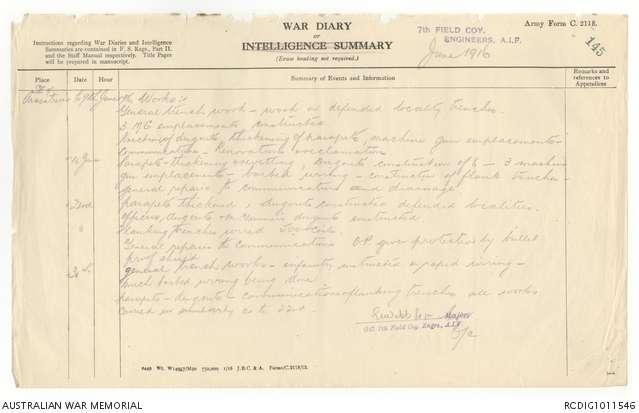 Army Form C. 2118.
WAR DIARY
or
INTELLIGENCE SUMMARY
(Erase heading not required.)
Instructions regarding War Diaries and Intelligence
Summaries are contained in F. S. Regs., Part II.
and the Staff Manual respectively. Title Pages
will be prepared in manuscript.
7th FIELD COY.
ENGINEERS, A.I.F.
June 1916
145
Place
Date
Hour
Summary of Events and Information
Remarks and
references to
Appendices
9th June
Works:-
General trench work - work at defended locality trenches.
3 MG emplacements constructed
dugouts, thickening of parapets, machine gun emplacements
Communication - Renovation
16 June
Parapets - thickening, revetting, dugouts construction of 6 - 3 machine
gun emplacements - barbed wiring - construction of flank trenches -
general repairs to communications and drainage
22nd
Parapets thickened, dugouts constructed defended localities.
officers, dugouts
Flanking trenches wired
General repairs to communications O.P given protection by bullet
proof shield
general trench works - infantry instructed in rapid wiring -
much barbed wiring being done
parapets - dugouts - communications & flanking trenches all works
carried on similarly as to 22nd.
Major
O.C. 7th Field Coy. Engrs., A.I.F.
J.B.C. & A. Forms/C.2118/12.
AUSTRALIAN WAR MEMORIAL
RCDIG1011546